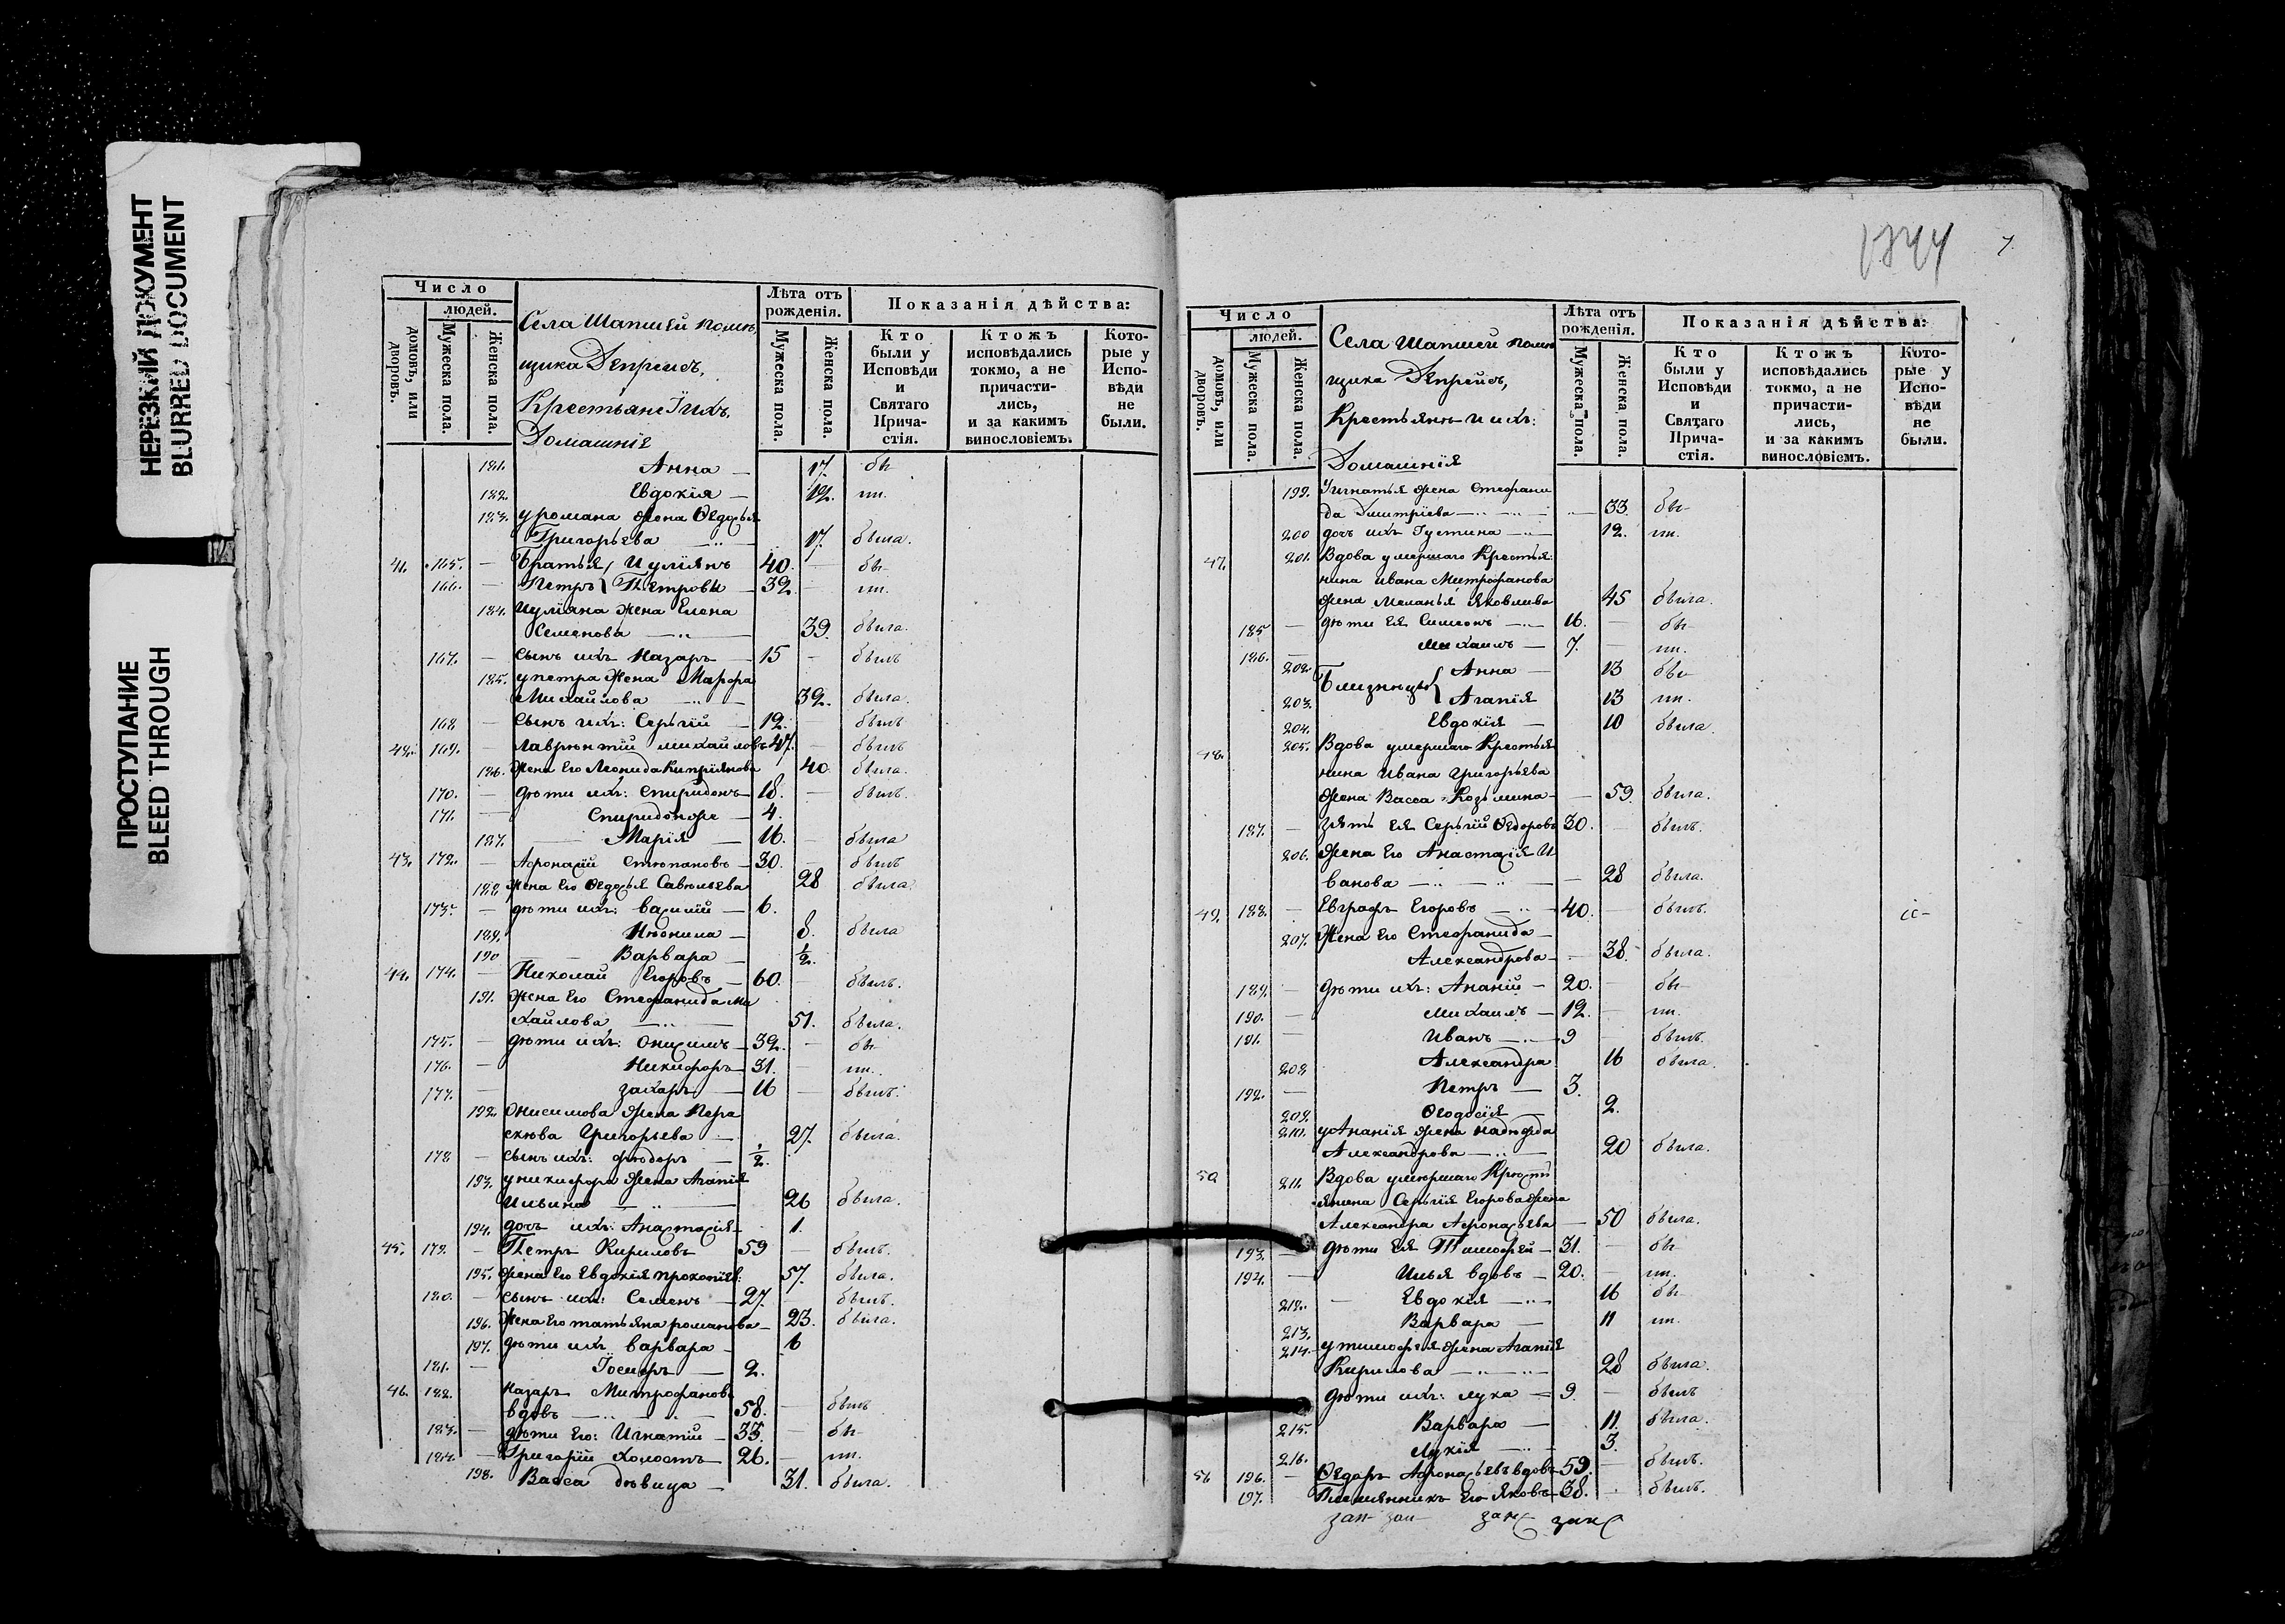 НЕРЕЗКИЙ ДОКУМЕНТ
BLURRED DOCUMENT
ПРОСТУПАНИЕ
BLEED THROUGH
Число
людей.
домовъ, или дворовъ.
Мужеска пола.
Женска пола.
Села Шапшей помѣ
щика Депрейсъ,
Крестьяне и ихъ
Домашнія
Лѣта отъ рожденія.
Мужеска пола.
Женска пола.
Показанія дѣйства:
Кто были у Исповѣди и Святаго Причастія.
Ктожъ исповѣдались токмо, а не причастились, и за какимъ винословіемъ.
Которые у Исповѣди не были.
181. Анна — 17. бы-
182. Евдокія — 12. ли.
183. у романа жена Ѳедосья
Григорьева — 17. была.
41. 165. — Братья Иуліянъ 40. — бы-
166. — Петръ Петровы — 32. — ли.
184. Иуліяна жена Елена
Семенова — 39. была.
167. — Сынъ ихъ Назаръ — 15 — былъ
185. у петра жена Марфа
Михайлова — 32. была.
168 — Сынъ ихъ: Сергій — 12. былъ
42. 169. — Лаврентій михайловъ 47. — былъ
186. Жена Его Леонида Кипріянова 40. была.
170. — Дѣти ихъ: Спиридонъ — 18. — былъ.
171. — Спиридонже — 4.
187. — Марія — 16. — была
43. 172. — Афонасій Степановъ — 30. — былъ
188. Жена Его Ѳедосья Савельева 28 была.
173. — дѣти ихъ: василій — 6.
189. Неонила — 8. была
190 — Варвара — 1/2.
44. 174. — Николай Егоровъ — 60. — былъ.
191. Жена Его Стефанида Ми
хайлова — 51. была.
175. — Дѣти ихъ: Онисимъ — 32. — бы-
176. — Никифоръ — 31. — ли.
177. — захаръ — 16 — былъ.
192. Онисимова жена Пера
скева Григорьева — 27. была.
178 — Сынъ ихъ: федоръ — 1/2.
193. у никифора жена Агапія
Ильина — 26 была.
194. дочь ихъ: Анастасія — 1
45. 179. — Петръ Кириловъ 59 — былъ.
195. Жена Его Евдокія прокопіев: 57. была.
180. — Сынъ ихъ: Семенъ — 27. — былъ.
196. Жена Его татьяна романова — 23. была.
197. дѣти ихъ варвара — 6
181. — Іосифъ — 2.
46. 182. Назаръ Митрофановъ
вдовъ — 58. — былъ
183. — дѣти Его: Игнатій — 33. — бы-
184. — Григорій холостъ — 26. — ли.
198. Васса дѣвица — 31. была.
1244
7.
Число
людей.
домовъ, или дворовъ.
Мужеска пола.
Женска пола.
Села Шапшей помѣ
щика Депрейсъ,
Крестьянъ и ихъ:
Домашнія
Лѣта отъ рожденія.
Мужеска пола.
Женска пола.
Показанія дѣйства:
Кто были у Исповѣди и Святаго Причастія.
Ктожъ исповѣдались токмо, а не причастились, и за какимъ винословіемъ.
Которые у Исповѣди не были.
199. У игнатья жена Стефани
да Дмитріева — 33. бы-
200 дочь ихъ Густина — 12. ли.
47. 201. Вдова умершаго Крестья:
нина Ивана Митрофанова
жена Меланья Яковлева 45 была.
185 — дѣти Ея Симеонъ — 16. — бы-
186. — Михаилъ — 7. — ли.
202. Близнецы Анна — 13 бы-
203. Агапія 13 ли.
204. Евдокія — 10 была.
48. 205. Вдова умершаго Крестья
нина Ивана Григорьева
жена Васса Козьмина — 59. была.
187. — Зять Ея Сергій Ѳедоровъ 30. — былъ.
206. Жена Его Анастасія И
ванова — 28 была.
49. 188. — Евграфъ Егоровъ — 40. — былъ.
207. Жена Его Стефанида —
Александрова — 38. была.
189. — Дѣти ихъ: Ананій — 20. — бы-
190. — Михаилъ — 12. — ли.
191. — Иванъ — 9 — былъ.
208 Александра 16 была.
192. — Петръ — 3.
209. Ѳеодосія 2.
210. у Ананія жена надежда
Александрова — 20 была.
50. 211. Вдова умершаго Крест
янина Сергія Егорова жена
Александра Афонасьева — 50 была.
193. — дѣти Ея Тимофей — 31. — бы-
194. — Илья вдовъ — 20. — ли.
212. — Евдокія — 16 бы-
213. Варвара — 11 ли.
214. у тимофея жена Агапія
Кирилова — 28 была.
дѣти ихъ: лука — 9. — былъ
215. Варвара — 11. была.
216. Лукія — 3.
51 196. — Ѳедоръ Афонасьевъ вдовъ 59. — былъ.
197. Племянникъ Его Яковъ — 38. — былъ.